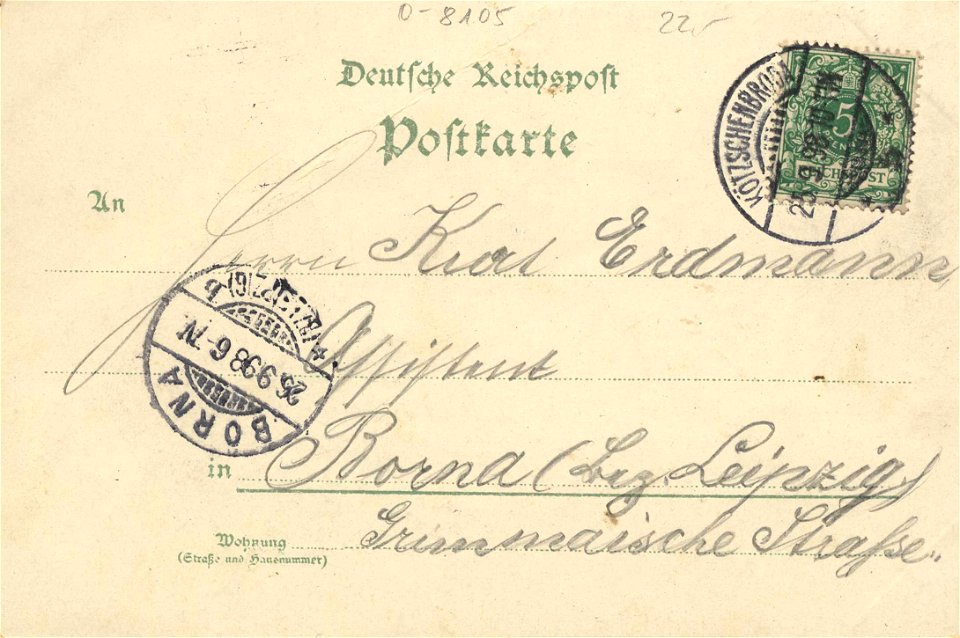 0-8105 22,-
Deutsche Reichspost
Postkarte
KÖTZSCHENBRODA
25.9.98.
5
An
Herrn Kurt Erdmann,
Assistent
BORNA
(BZ. LEIPZIG)
b
26.9.98 6-7V.
in Borna (Bez. Leipzig.)
Wohnung Grimmaische Straße.
(Straße und Hausnummer)